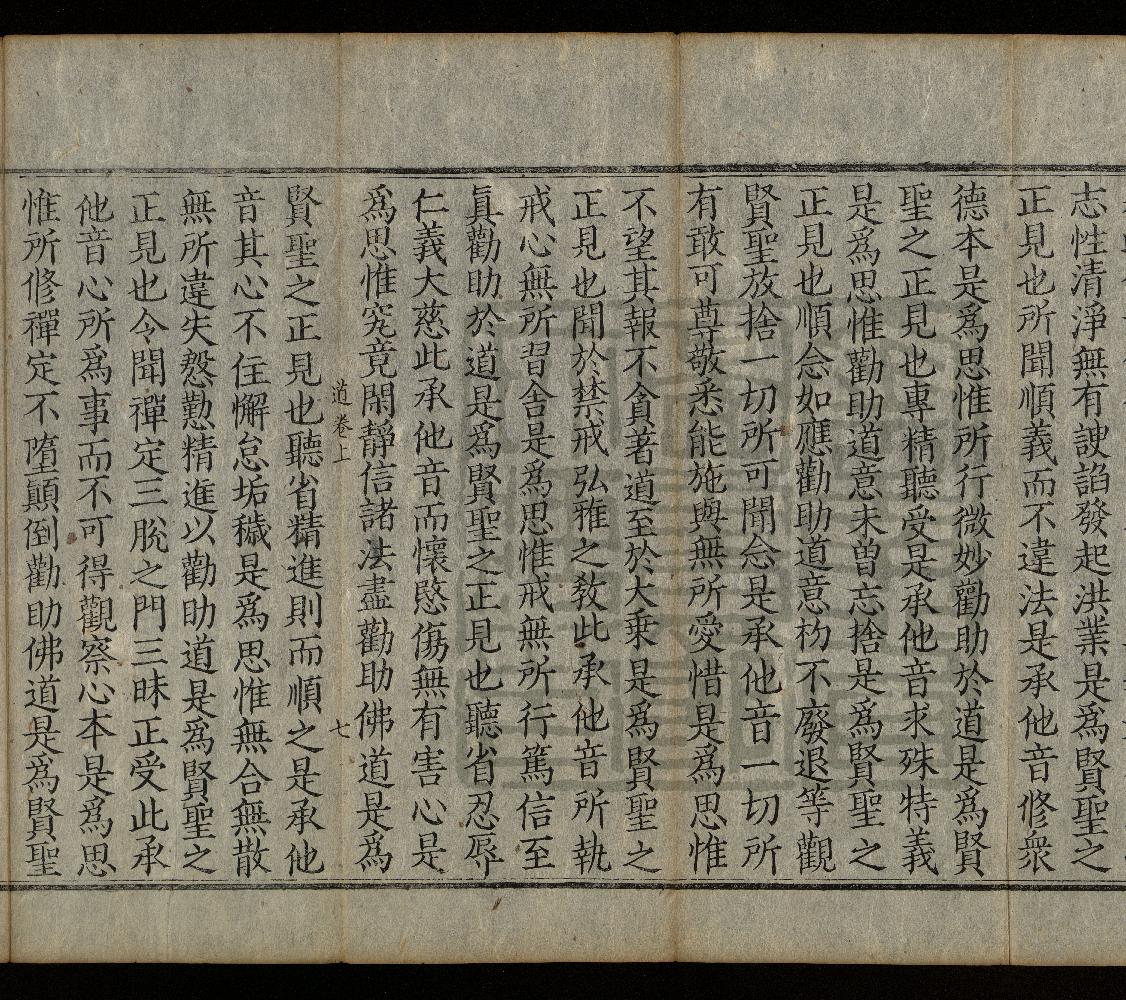 志性清淨無有諛諂發起洪業是爲賢聖之
正見也所聞順義而不違法是承他音修衆
德本是爲思惟所行微妙勸助於道是爲賢
聖之正見也專精聽受是承他音求殊特義
是爲思惟勸助道意未曽忘捨是爲賢聖之
正見也順念如應勸助道意礿不廢退等觀
賢聖放捨一切所可聞念是承他音一切所
有敢可尊敬悉能施與無所愛惜是爲思惟
不望其報不貪著道至於大乗是爲賢聖之
正見也聞於禁戒弘雅之教此承他音所執
戒心無所習舍是爲思惟戒無所行篤信至
眞勸助於道是爲賢聖之正見也聽省忍辱
仁義大慈此承他音而懷愍傷無有害心是
爲思惟究竟閑靜信諸法盡勸助佛道是爲
道卷上 七
賢聖之正見也聽省精進則而順之是承他
音其心不住懈怠垢穢是爲思惟無合無散
無所違失慇懃精進以勸助道是爲賢聖之
正見也令聞禪定三脫之門三昧正受此承
他音心所爲事而不可得觀察心本是爲思
惟所修禪定不墮顛倒勸助佛道是爲賢聖